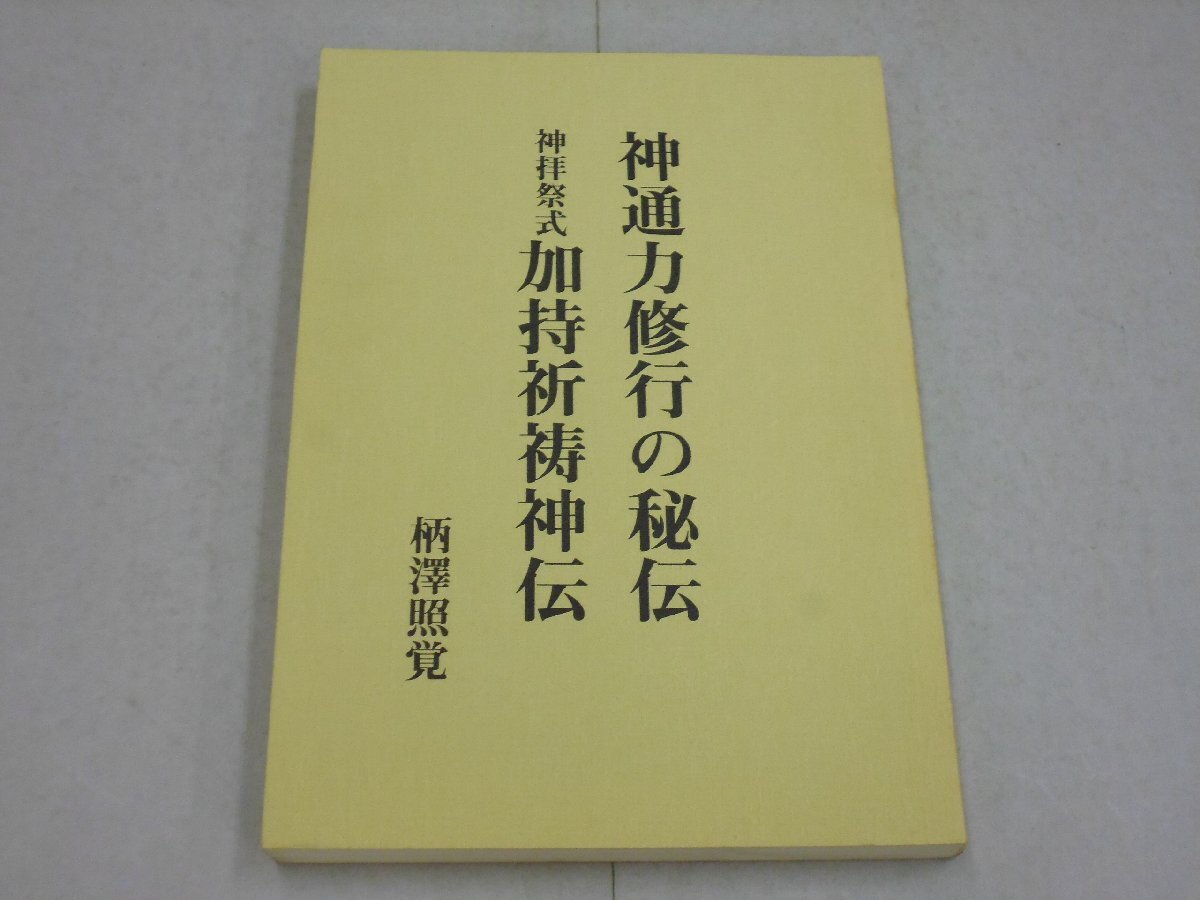 神通力修行の秘伝
神拝祭式 加持祈祷神伝
柄澤照覚